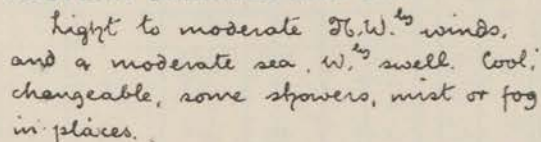 Light to moderate N.W.ly winds,
and a moderate sea, W.ly swell. Cool;
changeable, some showers, mist or fog
in places.